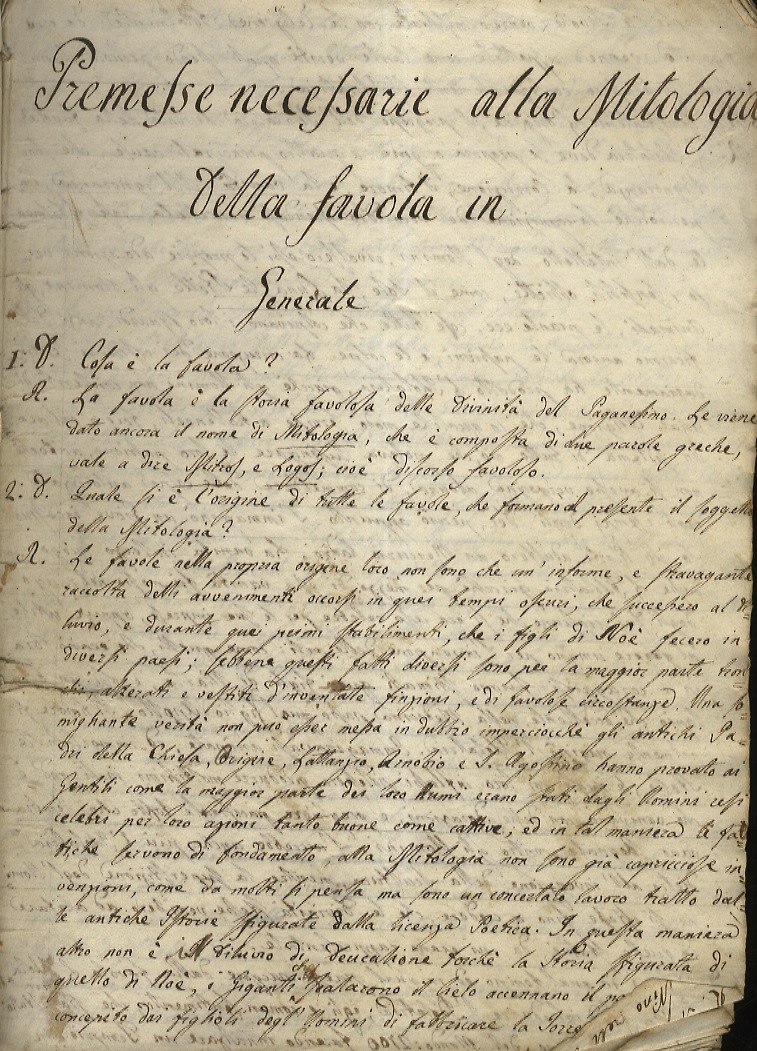 Premesse necessarie alla Mitologia
Della favola in
Generale
1: D. Cosa è la favola?
R. La favola è la storia favolosa delle Divinità del Paganesimo. Le viene
dato ancora il nome di Mitologia, che è composta di due parole greche,
vale a dire Mitos, e Logos; cioè discorso favoloso.
2: D. Quale si è l'origine di tutte le favole, che formano al presente il soggetto
della Mitologia?
R. Le favole nella propria origine loro non sono che un' informe, e stravagante
raccolta delli avvenimenti occorsi in quei tempi oscuri, che succesero al di-
luvio, e durante quei primi stabilimenti, che i figli di Noè fecero in
diversi paesi; sebbene questi fatti diversi sono per la maggior parte tron-
chi, alterati e vestiti d'inventate finzioni, e di favolose circostanze. Una so-
migliante verità non può esser messa in dubbio imperciocchè gli antichi Pa-
dri della Chiesa, Origine, Lattanzio, Arnobio e S. Agostino hanno provato ai
Gentili come la maggior parte dei loro Numi erano stati dagli Uomini resi
celebri per loro azioni tanto buone come cattive; ed in tal maniera le fat-
tiche servono di fondamento, alla Mitologia non sono già capricciose in-
venzioni, come da molti si pensa ma sono un concertato lavoro tratto dal-
le antiche Istorie sfigurate dalla licenza Poetica. In questa maniera
altro non è Il Diluvio di Deucalione forchè la Storia sfigurata di
quello di Noè, i Giganti scalarono il Cielo accennano il
concepito dai figlioli degl' Uomini di fabbricare la Torre